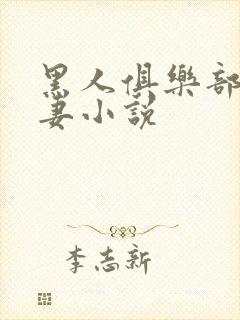 黑人俱樂部
妻小說
李志新